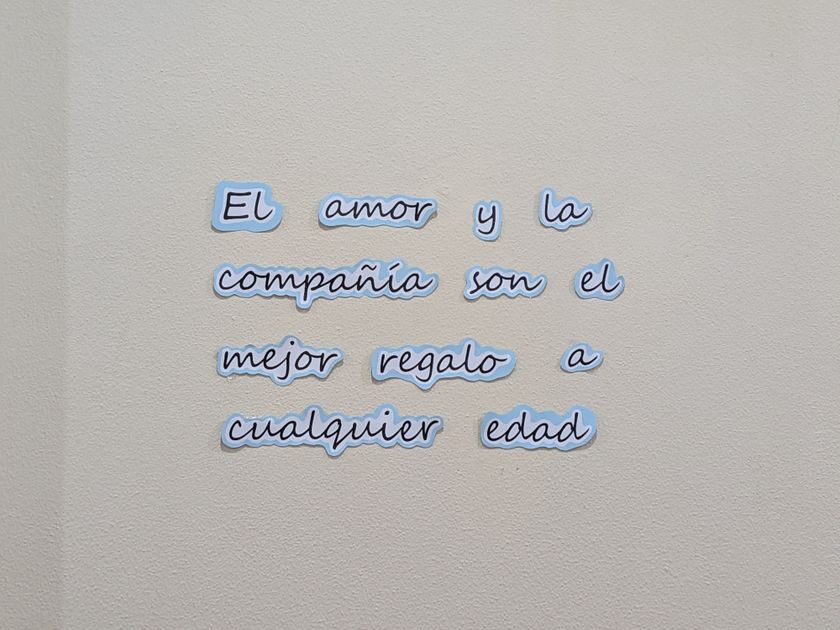 El amor y la
compañía son el
mejor regalo a
cualquier edad